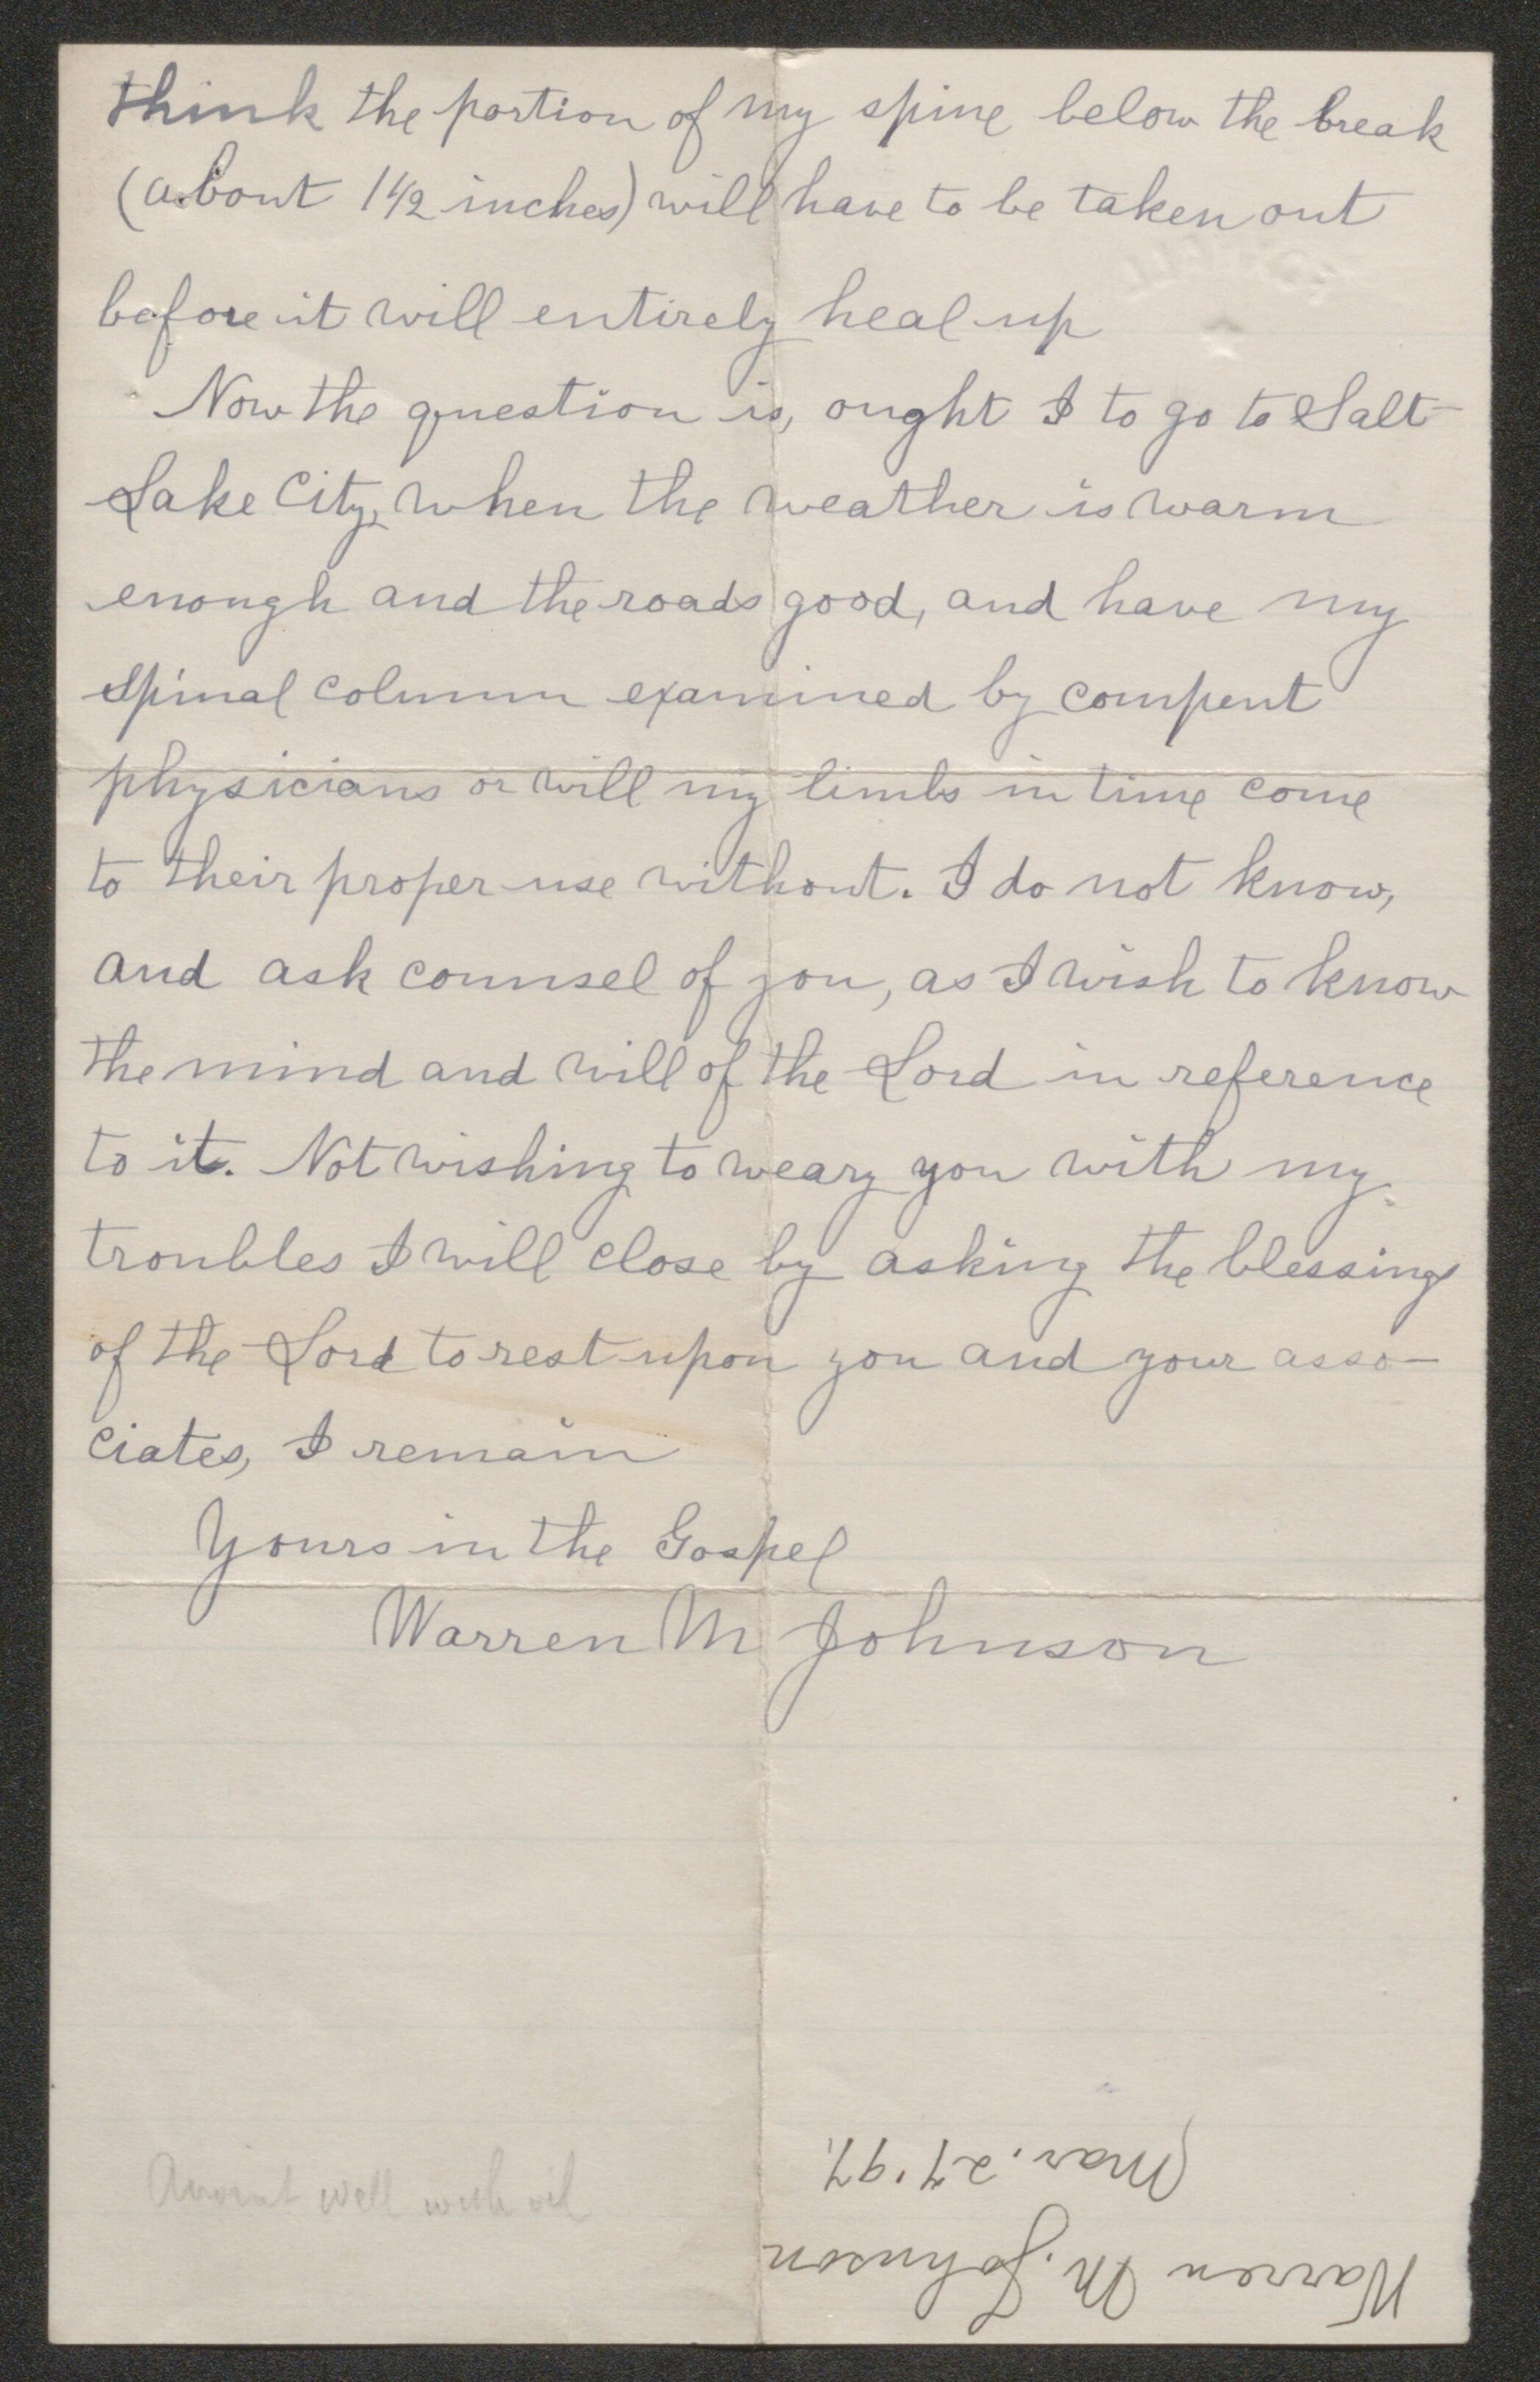 think the portion of my spine below the break
(about 1 1/2 inches) will have to be taken out
before it will entirely heal up
Now the question is, ought I to go to Salt
Lake City, when the weather is warm
enough and the roads good, and have my
spinal column examined by compent
physicians or will my limbs in time come
to their proper use without. I do not know,
and ask counsel of you, as I wish to know
the mind and will of the Lord in reference
to it. Not wishing to weary you with my
troubles I will close by asking the blessings
of the Lord to rest upon you and your asso-
ciates, I remain
Yours in the Gospel
Warren M Johnson
Anoint well with oil
Warren M. Johnson
Mar. 27 '97.